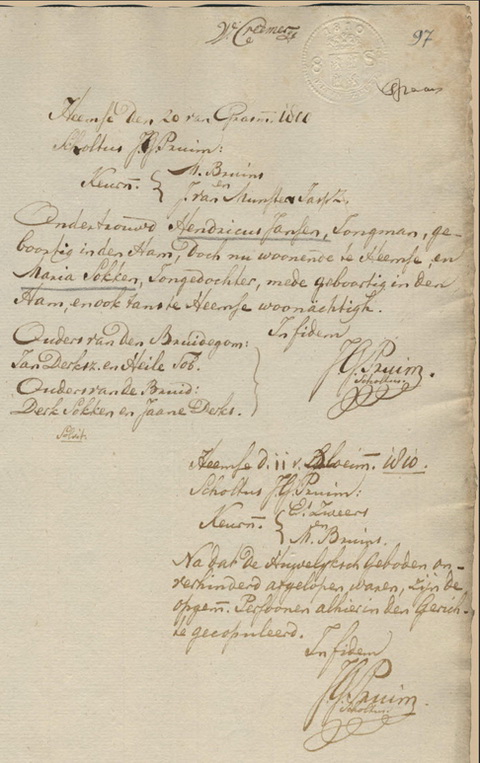 97
Heemse den 20 van Grasm. 1810
Scholtus J G Pruim:
Keurn. { M. Bruins
en
J. van Munster
Ondertrouwd Hendricus Jansen, Jongman, ge-
boortig in den Ham, doch nu woonende te Heemse, en
Maria Sokken, Jongedochter, mede geboortig in den
Ham, en ook tans te Heemse woonächtigh.
In fidem
Ouders van den Bruidegom:
Jan Derksz. en Heile Tob.
J G Pruim.
Scholtus.
Ouders van de Bruid:
Derk Sokken en Jaane Derks.
Solvit
Heemse d. 11 v. Bloeim. 1810.
Scholtus J G Pruim:
Keurn. { E. Zweers
en
M. Bruins.
Na dat de Huwelyksch Geboden on-
verhinderd afgelopen waren, zijn de
opgem. Persoonen alhier in den Gerich-
te gecopuleerd.
In fidem
J G Pruim.
Scholtus.